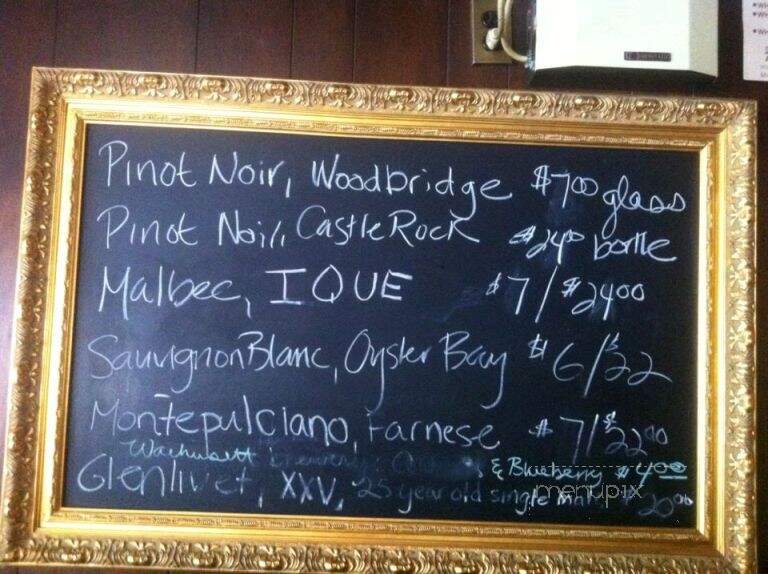 Pinot Noir, Woodbridge $7.00 glass
Pinot Noir, Castle Rock $24.00 bottle
Malbec, IQUE $7/$24.00
Sauvignon Blanc, Oyster Bay $6/$22
Montepulciano, Farnese $7/$22.00
Wachusett & Blueberry $4.00
Glenlivet, XXV, 25 year old single malt $20.00
menupix